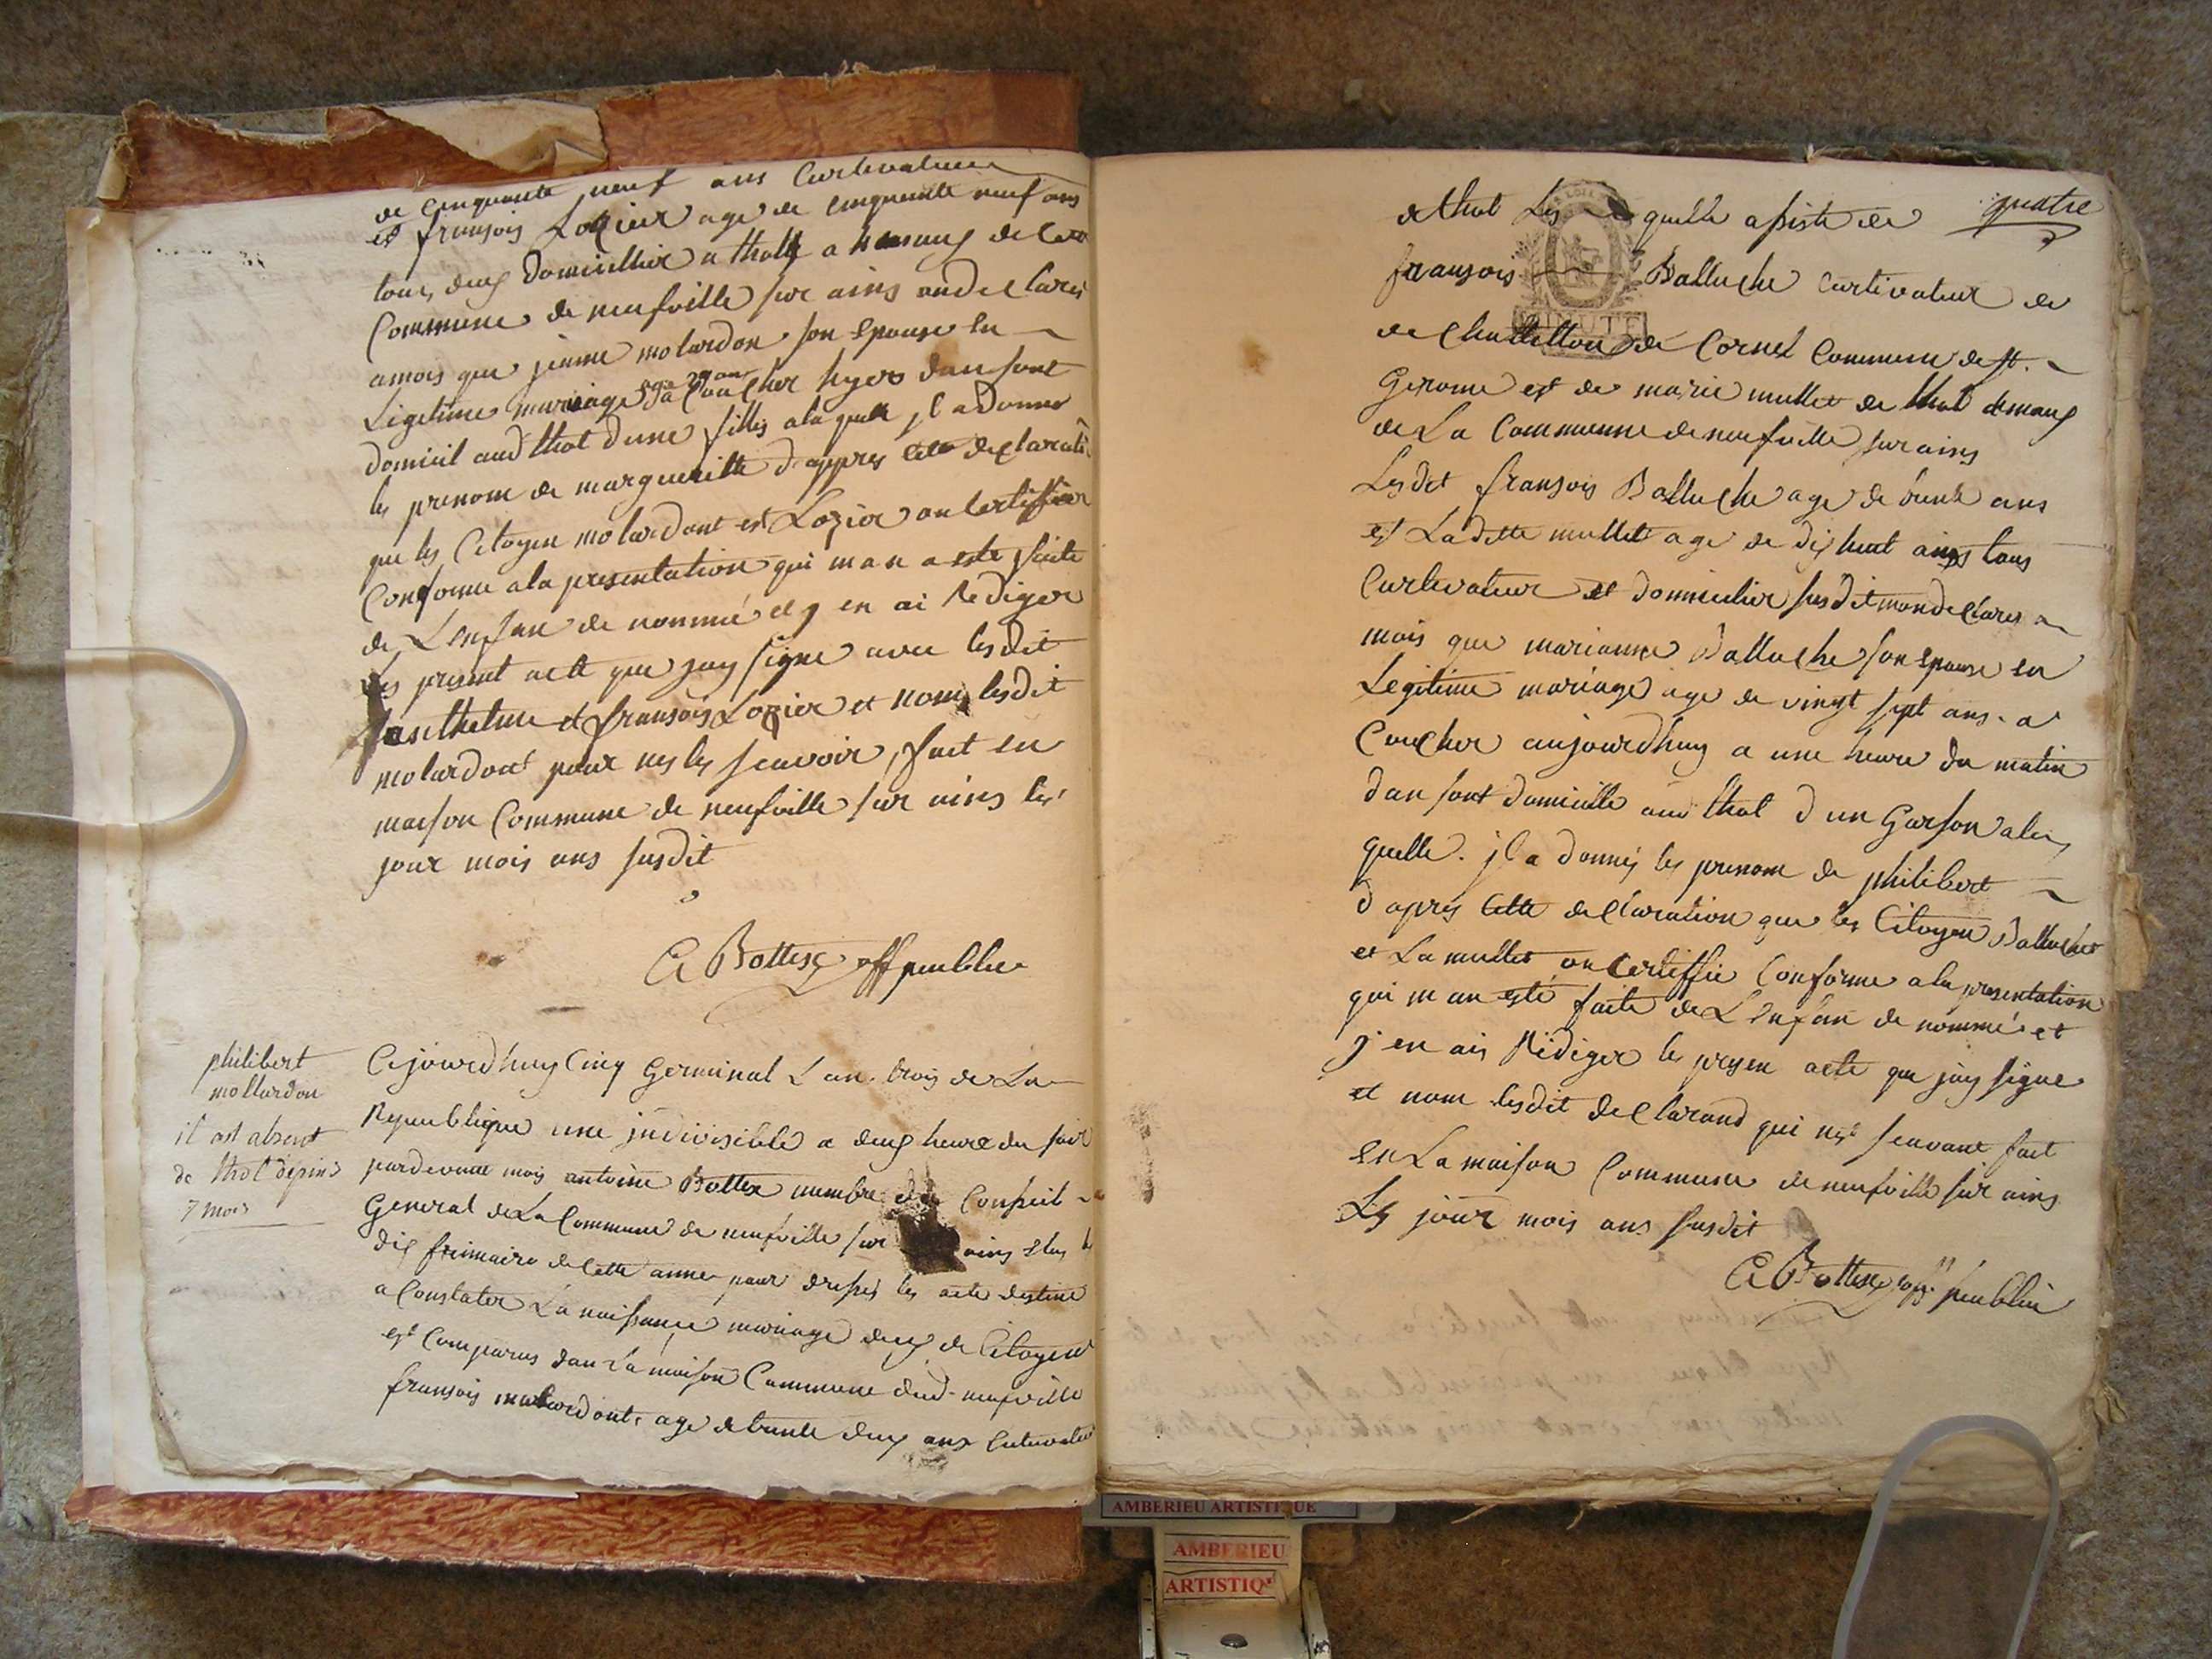 de cinquante neuf ans Curtivateur
et fransois Lozier age de cinquante neuf ans
tous deux domicillier a tholt a hamaux de
Commune de neufville sur ains
amois que jeanne molardon son epouse en
Legitime mariage age 29 ans a Coucher hyers dan sont
domicil aud thol d'une fillies a laquelle jl a donner
les prenom de margueritte d'appres cette declaration
que les Citoyen molardont est Lozier on Certiffier
Conforme a la presentation qui man a este faite
de L'enfan de nommé et j en ai Rediger
les present acte que jay signe avec lesdit
et fransois Lozier et nom lesdit
molardont pour nes les scavoir, fait en
maison Commune de neufville sur ains les
jour mois ans susdit
A Bottex off peublic
philibert
mollardon
il est absent
de thol depuis
7 mois
Cejourdhuy Cinq Germinal L'an trois de La
Republique une jndivisible a deux heure du soir
pardevant mois antoine Bottex membre du Conseil
General de La Commune de neufville sur ains elus le
dix frimaire de Cette année pour dressés les acte destiné
a Constater La naissance mariage deces de Citoyens
est Comparus dan La maison Commune dud. neufville
fransois molardont age de trente deux ans
quatre
de thol Les quelle assiste de
fransois Ballache Curtivateur de
de Chatillon de Cornel Commune de st.
Gerome et de marie mullet de thol
de La Commune de neufville sur ains
Lesdit fransois Ballache age de trente ans
et Ladite mullet age de dixhuit ans tous
Curtivateur et domicilier susdit mon declares a
mois que marianne Ballache son epouse en
Legitime mariage age de vingt sept ans. a
Coucher aujourdhuy a une heure du matin
dan sont domicille aud thol d un Garson a la
quelle. jl a donnés les prenom de philibert
d'apres Cette declaration que les Citoyen Ballache
et La mullet on Certiffie Conforme a la presentation
qui m an esté faite de L'enfan de nommé et
j en ais Rediger les presen acte que jay signe
et nom lesdit declarand qui nes scavant fait
en La maison Commune de neufville sur ains
Les jour mois ans susdit
A Bottex off. peublic
MINUTE
AMBERIEU ARTISTIQUE
AMBERIEU
ARTISTIQ